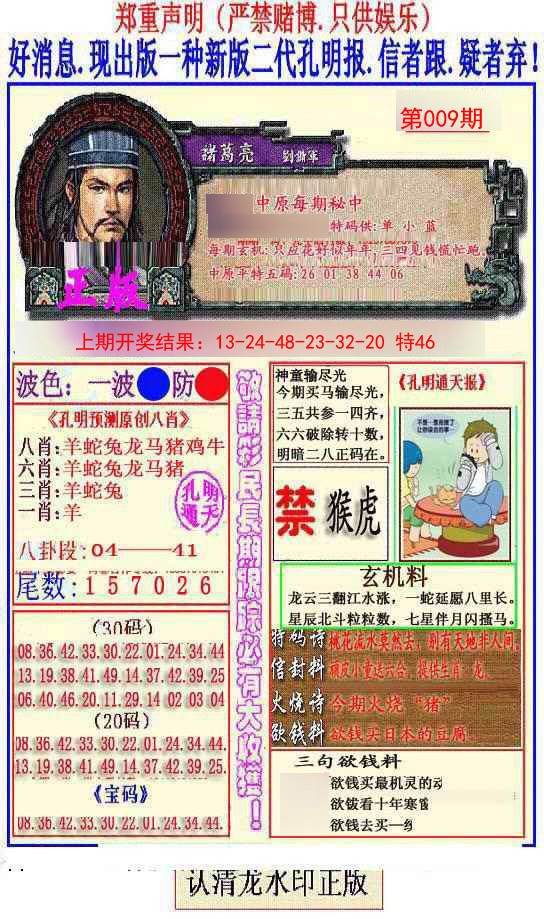 郑重声明（严禁赌博.只供娱乐）
好消息.现出版一种新版二代孔明报.信者跟.疑者弃!
第009期
諸葛亮
中原每期秘中
特码供:单 小 蓝
每期玄机:只应花好似年年,三四见钱慌忙跑
中原平特五码:26 01 38 44 06
正版
上期开奖结果：13-24-48-23-32-20 特46
波色：一波 防
《孔明预测原创八肖》
八肖:羊蛇兔龙马猪鸡牛
六肖:羊蛇兔龙马猪
三肖:羊蛇兔
一肖:羊
孔明
通天
八卦段:04——41
尾数:157026
(30码)
08.36.42.33.30.22.01.24.34.44
13.19.38.41.49.14.37.42.39.25
06.40.46.20.11.29.14 02 03 04
(20码)
08.36.42.33.30.22.01.24.34.44.
13.19.38.41.49.14.37.42.39.25.
《宝码》
08.36.42.33.30.22.01.24.34.44.
敬請彩民長期跟踪必有大收獲!
神童输尽光
今期买马输尽光，
三五共参一四齐，
六六破除转十数，
明暗二八正码在。
《孔明通天报》
禁 猴虎
玄机料
龙云三翻江水涨，一蛇延愿八里长。
星辰北斗粒粒数，七星伴月闪搔马。
特码诗 桃花流水莫然去，别有天地非人间
信封料 顽皮小童送六合，提供生肖：龙。
火烧诗 今期火烧“猪”
欲钱料 欲钱买日本的豆腐
三句欲钱料
欲钱买最机灵的动
欲钱看十年寒窗
欲钱去买一
认清龙水印正版